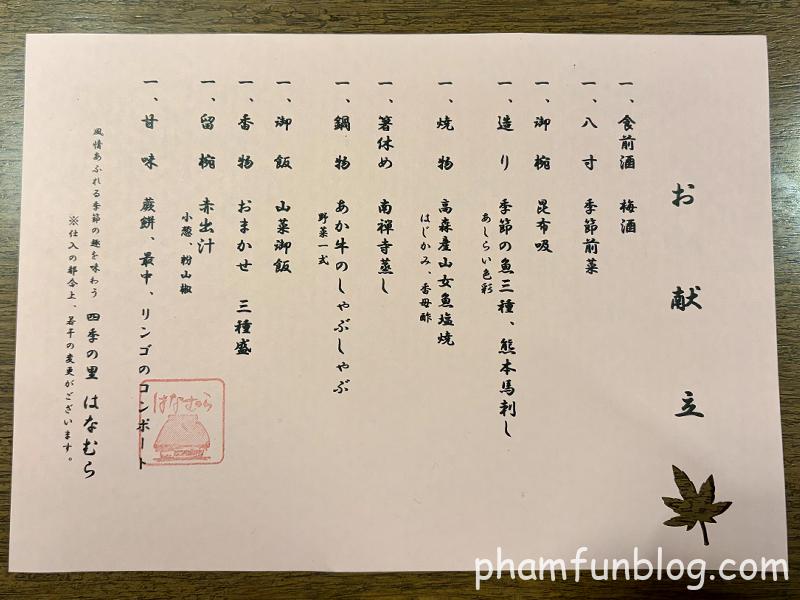 お献立
一、食前酒 梅酒
一、八寸 季節前菜
一、御椀 昆布吸
一、造り 季節の魚三種、熊本馬刺し
あしらい色彩
一、焼物 高森産山女魚塩焼
はじかみ、香母酢
一、箸休め 南禅寺蒸し
一、鍋物 あか牛のしゃぶしゃぶ
野菜一式
一、御飯 山菜御飯
一、香物 おまかせ 三種盛
一、留椀 赤出汁
小葱、粉山椒
一、甘味 蕨餅、最中、リンゴのコンポート
はなむら
風情あふれる季節の趣を味わう 四季の里 はなむら
※仕入の都合上、若干の変更がございます。
phamfunblog.com